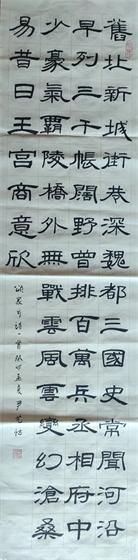 舊址新城街巷深魏都三國史常聞河沿
早列三千帳闊野曾排百萬兵丞相府中
少豪氣霸陵橋外無戰雲風雲變幻滄桑
易昔日王宮商意欣
詩一首